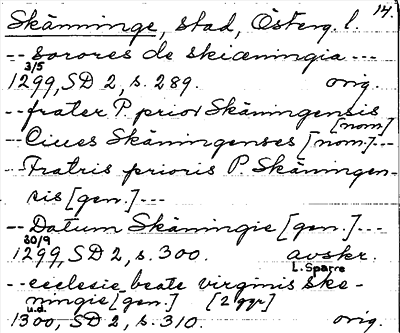 14.
Skänninge, stad, Österg. l.
-- sorores de skiæningia ---
3/5
1299, SD 2, s. 289. orig.
-- frater P. prior Skäningensis
[nom]
-- Ciues Skäningenses [nom] ---
-- Fratris prioris P. Skäningen-
sis [gen.] ---
-- Datum Skäningie [gen.] ---
30/9
1299, SD 2, s. 300. avskr.
L. Sparre
-- ecclesie beate virginis ske-
ningie [gen.] [2 ggr]
u.d.
1300, SD 2, s. 310. orig.